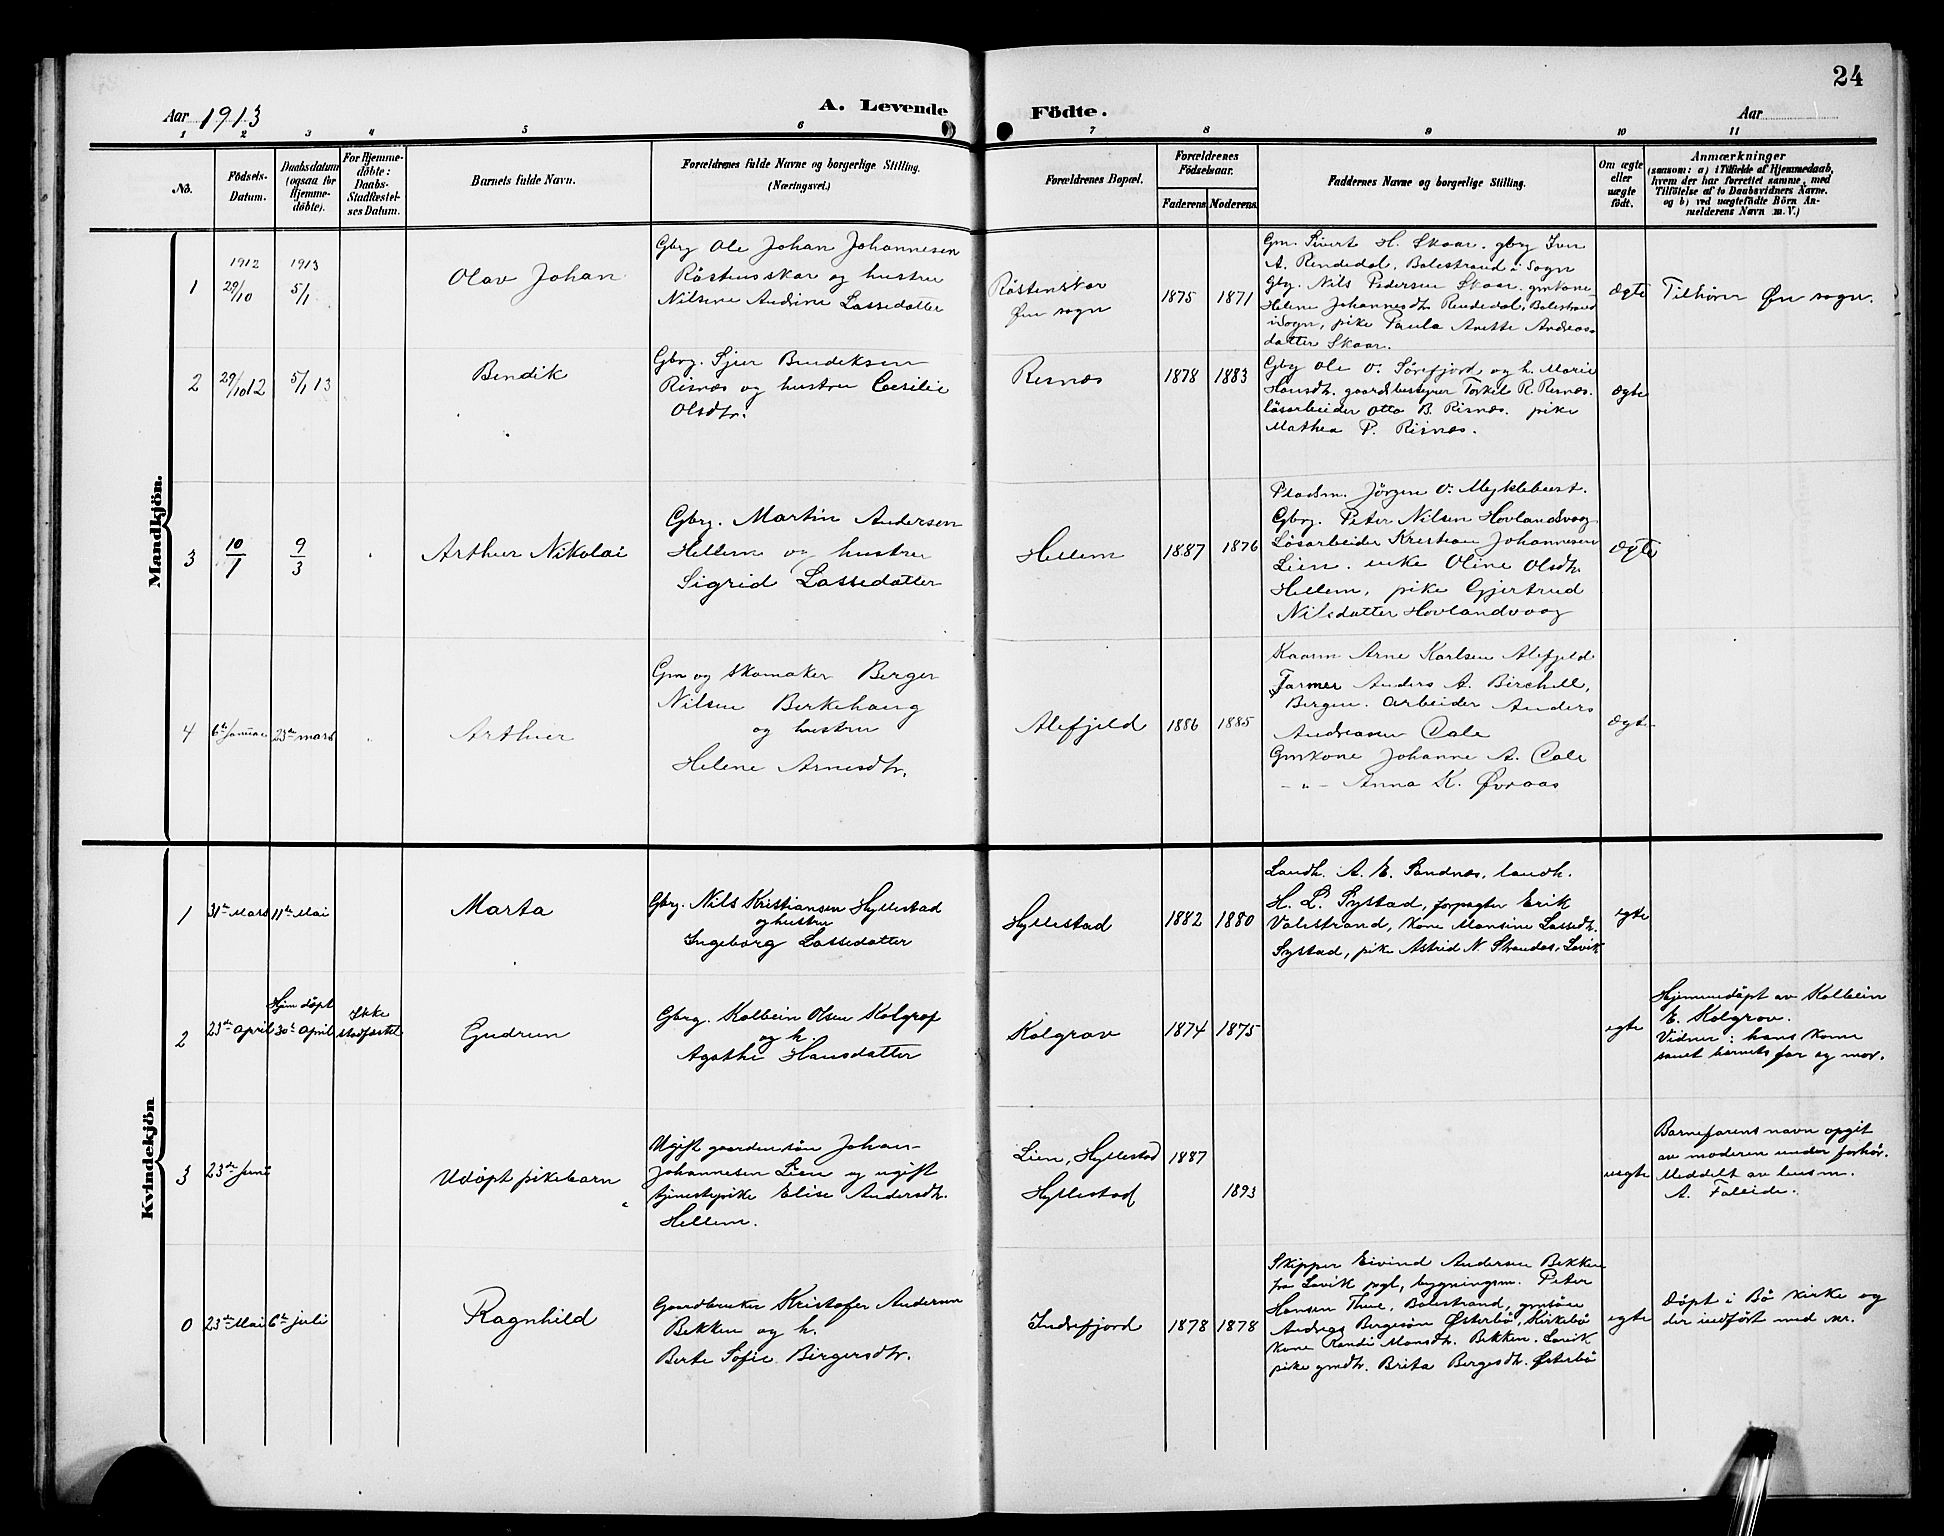 24
Aar 1913
A. Levende
Födte.
Aar
1 2 3 4 5 6 7 8 9 10 11
No.
Födsels-
Datum.
Daabsdatum
(ogsaa for
Hjemme-
döbte).
For Hjemme-
döbte:
Daabs-
Stadfæstel-
ses Datum.
Barnets fulde Navn.
Forældrenes fulde Navne og borgerlige Stilling.
(Næringsvei.)
Forældrenes Bopæl.
Forældrenes
Födselsaar.
Faderens Moderens
Faddernes Navne og borgerlige Stilling.
Om ægte
eller
uægte
födt.
Anmærkninger
(saasom: a) i Tilfælde af Hjemmedaab,
hvem der har forrettet samme, med
Tilföielse af to Daabsvidners Navne.
og b) ved uægtefödte Börn An-
melderens Navn m. V.)
Mandkjön.
1
1912
29/10
1913
5/1
Olav Johan
Gbrg Ole Johan Johannesen
Röstensskar og hustru
Nilsine Andrine Lassedatter
Röstenskar
Øn sogn
1875 1871
Gm. Sivert H. Skaar. gbrg Iver
A. Rendedal, Balestrand i Sogn
Gbrg. Nils Pedersen Skaar. gmkone
Helene Johannesdtr Rendedal, Balestrand
i Sogn, pike Paula Anette Andreas-
datter Skaar.
Ægte
Tilhörer Øn sogn.
2
29/10 12
5/1 13
Bendik
Gbrg. Sjur Bendiksen
Risnæs og hustru Cecilie
Olsdtr.
Risnæs
1878 1883
Gbrg Ole O. Sörefjord og h. Marie
Hansdtr. gaardbestyrer Torkel R. Risnæs.
lösarbeider Otto B. Risnæs. pike
Mathea P. Risnæs.
Ægte
3
10/1
9/3
Arthur Nikolai
Gbrg. Martin Andersen
Hellem og hustru
Sigrid Lassedatter
Hellem
1887 1876
Pladsm. Jörgen O. Myklebust.
Gbrg. Peter Nilsen Hovlandsvaag
Lösarbeider Kristian Johannesen
Lien. enke Oline Olsdtr.
Hellem, pike Gjertrud
Nilsdatter Hovlandsvaag
Ægte
4
6te Januar
23de mars
Arthur
Gm og skomaker Berger
Nilsen Berkehaug
og hustru
Helene Arnesdtr.
Alefjeld
1886 1885
Kaarm Arne Karlsen Alefjeld
Farmer Anders A. Birchill,
Bergen. arbeider Anders
Andreasen Cale
Gmkone Johanne A. Cale
– „ – Anna K. Övraas
Ægte
Kvindekjön
1
31te Mars
11te Mai
Marta
Gbrg. Nils Kristiansen Hyllestad
og hustru
Ingeborg Lassedatter
Hyllestad
1882 1880
Landh. A. E. Sandnes, landh.
H. L. Systad, forpagter Erik
Valestrand, kone Monsine Lassedtr.
Systad, pike Astrid N. Strandos, Lavik
egte
2
23de April
Hjem döpt
30te April
Ikke
stadfæstet
Gudrun
Gbrg. Kolbein Olsen Kolgrof
og h.
Agathe Hansdatter
Kolgrav
1874 1875
egte
Hjemmedöpt av Kolbein
E. Kolgrov.
Vidner: hans kone
samt barnets far og mor.
3
23de Juni
Udöpt pikebarn
Ugift gaardmansön Johan
Johannesen Lien og ugift
tjenestepike Elise Andersdtr.
Hellem.
Lien, Hyllestad
Hyllestad
1887
1893
uegte
Barnefarens navn opgit
av moderen under forhör.
Meddelt av lensm.
A. Faleide.
0
23de Mai
6te juli
Ragnhild
Gaardbruker Kristofer Andersen
Bekken og h.
Berte Sofie Birgersdtr.
Indrefjord
1878 1878
Skipper Eivind Andersen Bekken
fra Lavik pgl, bygningsm. Peter
Hansen Thue, Balestrand, gmsön
Andreas Bergesön Österbö, Kirkebö
Kone Randi Monsdtr. Bekken. Lavik
pike gmdtr. Brita Bergesdtr. Österbö
egte
Döpt i Bö kirke og
der indfört med nr.